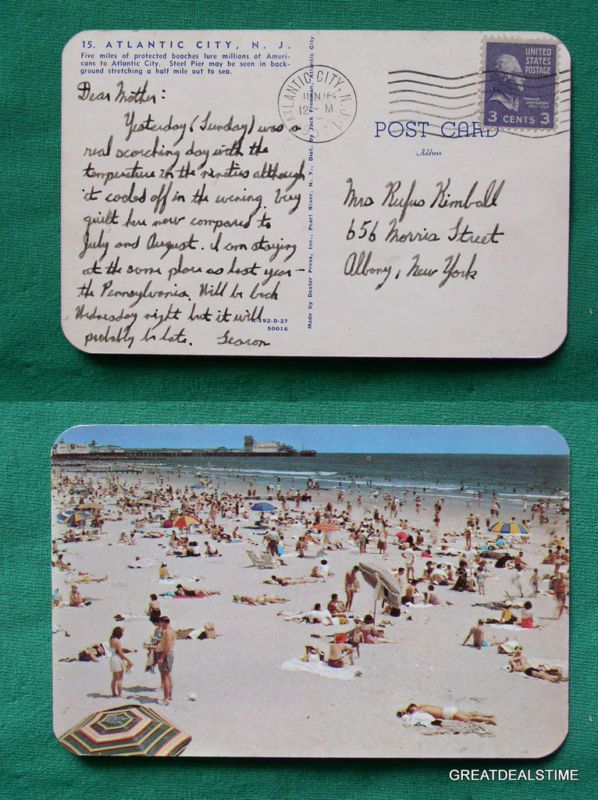 15. ATLANTIC CITY, N. J.
Five miles of protected beaches lure millions of Ameri-
cans to Atlantic City. Steel Pier may be seen in back-
ground stretching a half mile out to sea.
Dear Mother:
Yesterday (Sunday) was a
real scorching day with the
temperature in the nineties although
it cooled off in the evening. Very
quiet here now compared to
July and August. I am staying
at the same place as last year –
the Pennsylvania. Will be back
Wednesday night but it will
probably be late.
K-192-D-27
50016
Made by Dexter Press, Inc., Pearl River, N. Y., Dist. by Jack Freeman, Atlantic City
ATLANTIC CITY, N.J.
12 M
UNITED
STATES
POSTAGE
3 CENTS 3
POST CARD
Address
Mrs Rufus Kimball
656 Morris Street
Albany, New York
GREATDEALSTIME